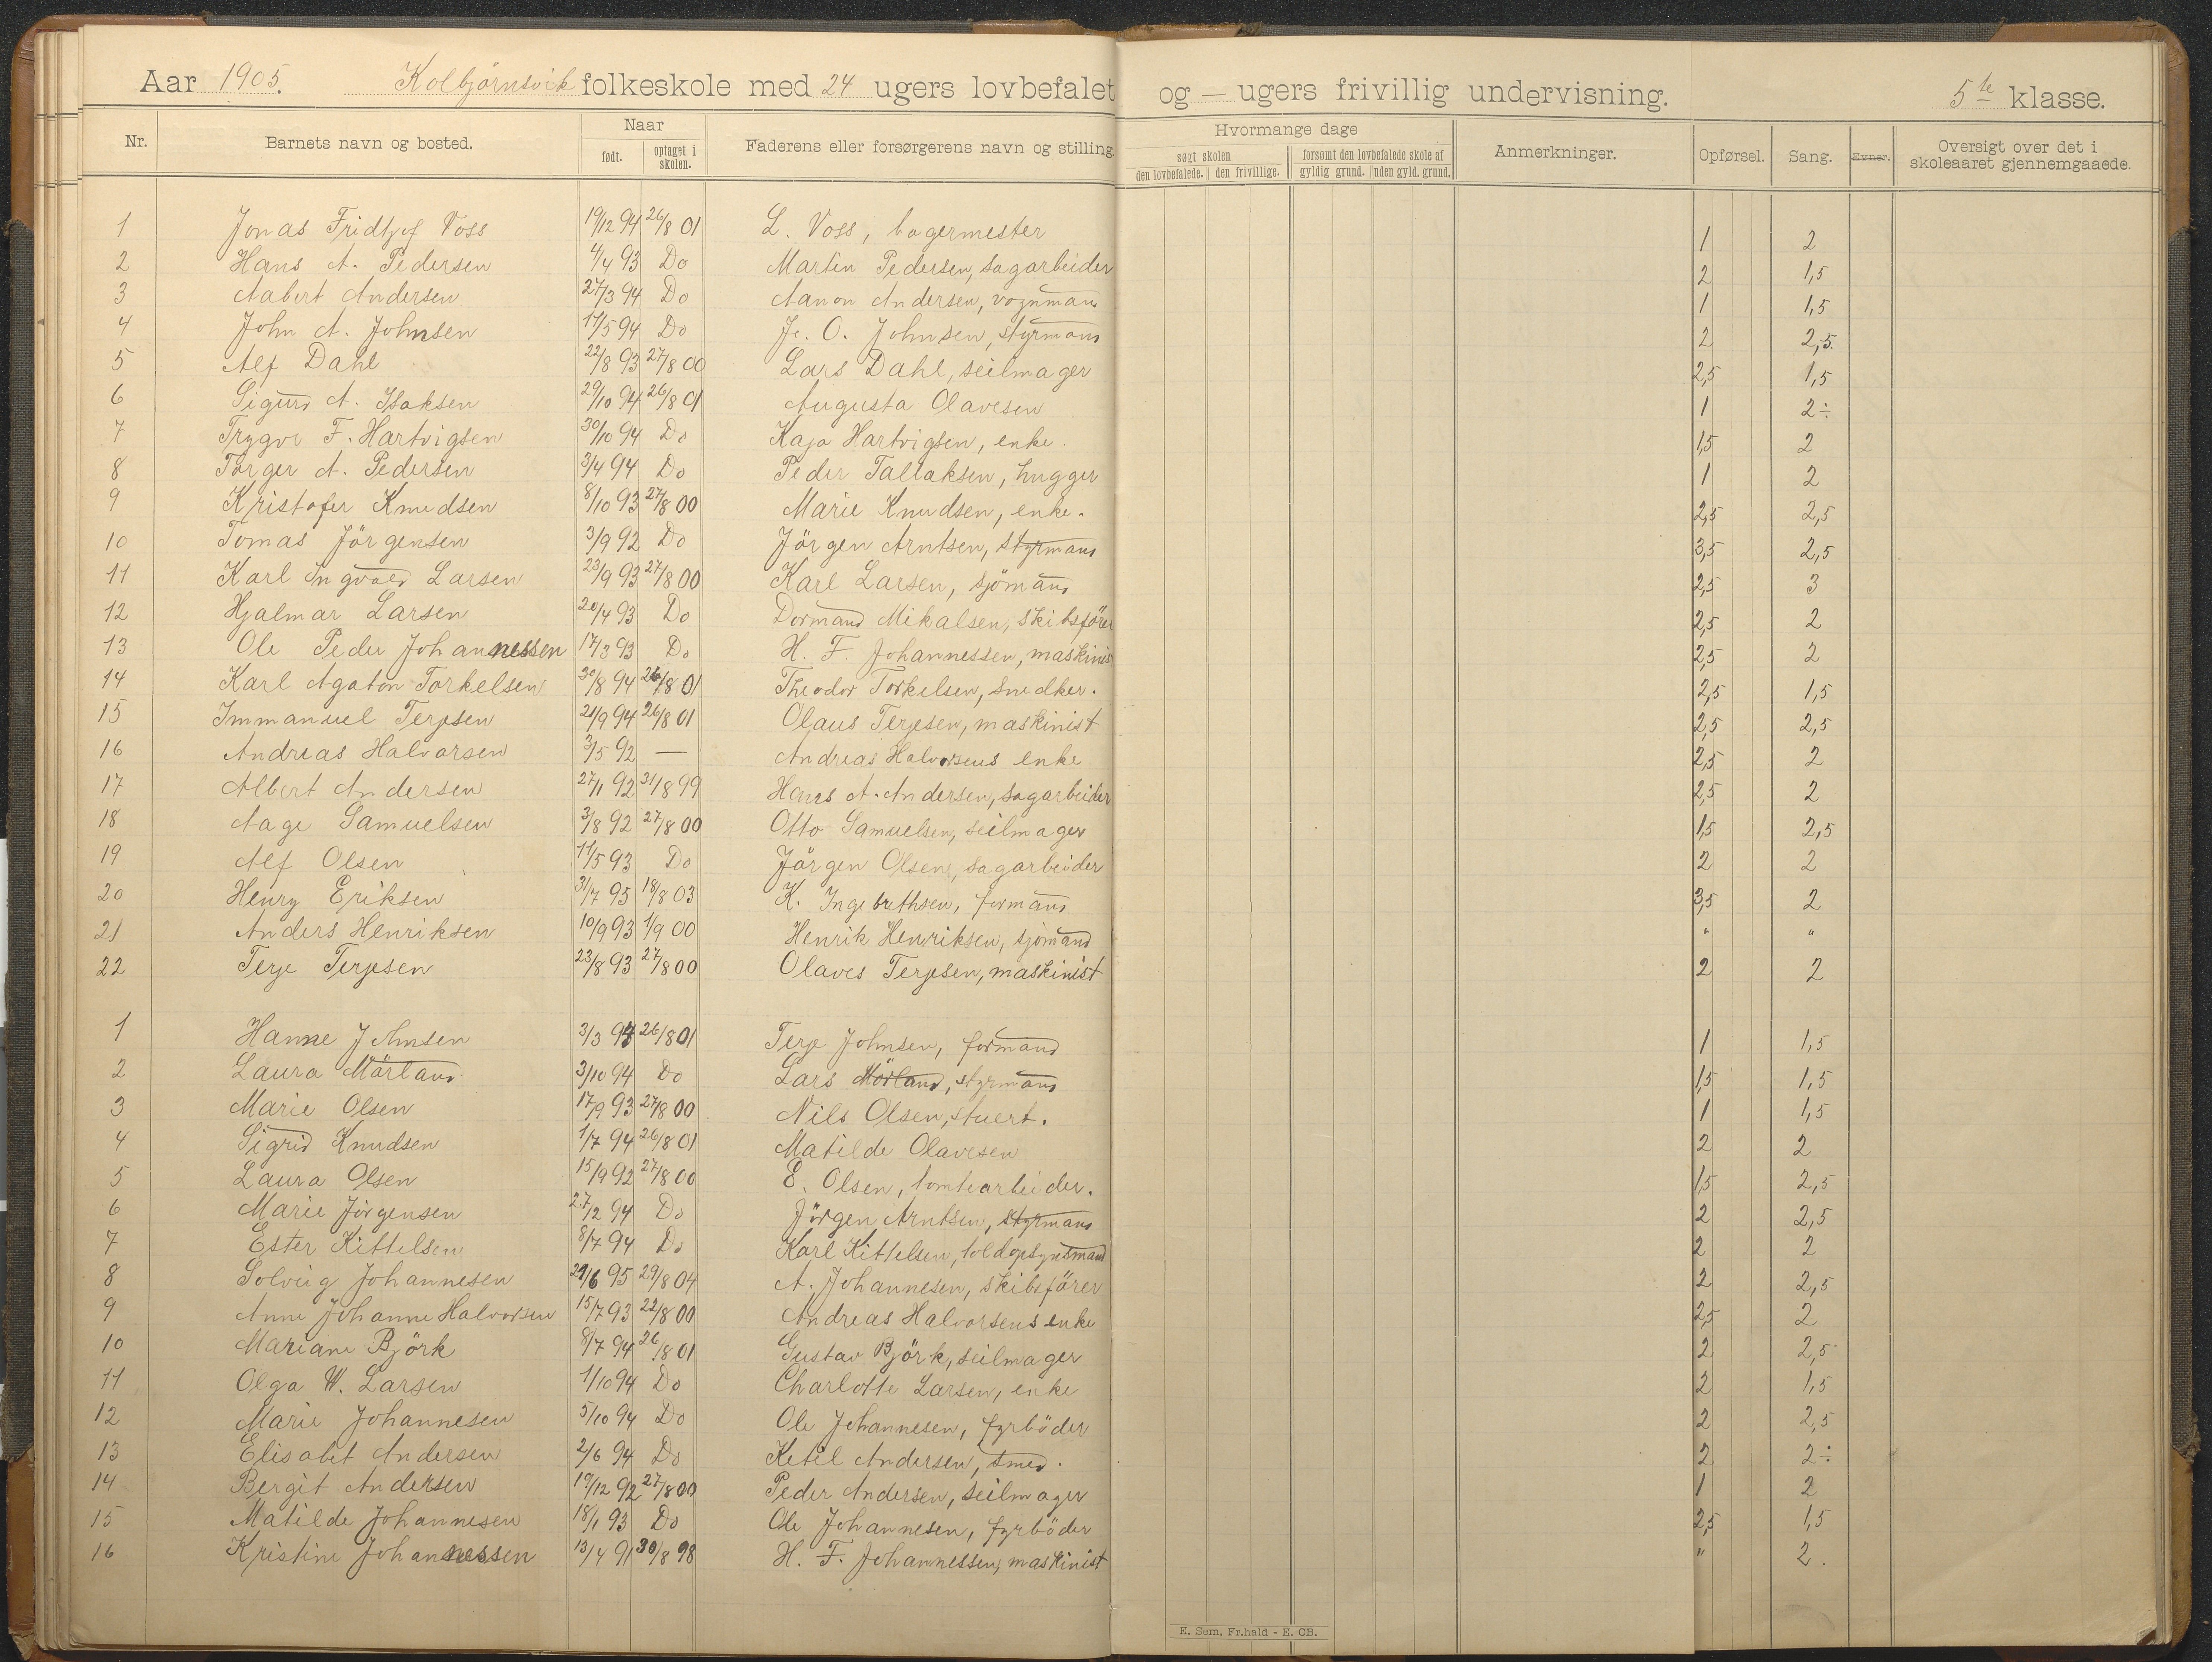 Aar 1905. Kolbjörnsvik folkeskole med 24 ugers lovbefalet og — ugers frivillig undervisning. 5te klasse.
Nr. Barnets navn og bosted. Naar født. optaget i skolen. Faderens eller forsørgerens navn og stilling. Hvormange dage søgt skolen den lovbefalede. den frivillige. forsømt den lovbefalede skole af gyldig grund. uden gyld. grund. Anmerkninger. Opførsel. Sang. Evner. Oversigt over det i skoleaaret gjennemgaaede.
1 Jonas Fridtjof Voss 19/12 94 26/8 01 L. Voss, bagermester 1 2
2 Hans A. Pedersen 4/4 93 Do Martin Pedersen, sagarbeider 2 1,5
3 Aabert Andersen 27/3 94 Do Aanon Andersen, vognmand 1 1,5
4 John A. Johnsen 17/5 94 Do Je. O. Johnsen, styrmand 2 2,5.
5 Alf Dahl 22/8 93 27/8 00 Lars Dahl, seilmager 2,5 1,5
6 Sigurd A. Isaksen 29/10 94 26/8 01 Augusta Olavesen 1 2÷
7 Trygve F. Hartvigsen 30/10 94 Do Kaja Hartvigsen, enke. 1,5 2
8 Torger A. Pedersen 3/4 94 Do Peder Tallaksen, hugger 1 2
9 Kristofer Knudsen 8/10 93 27/8 00 Marie Knudsen, enke. 2,5 2,5
10 Tomas Jörgensen 3/9 92 Do Jörgen Arntsen, styrmand 3,5 2,5
11 Karl Ingvald Larsen 23/9 93 27/8 00 Karl Larsen, sjömand 2,5 3
12 Hjalmar Larsen 20/4 93 Do Dormand Mikalsen, skibsförer 2,5 2
13 Ole Peder Johannessen 17/3 93 Do H. F. Johannessen, maskinist 2,5 2
14 Karl Agaton Torkelsen 30/8 94 26/8 01 Theodor Torkelsen, snedker. 2,5 1,5
15 Immanuel Terjesen 21/9 94 26/8 01 Olaus Terjesen, maskinist 2,5 2,5
16 Andreas Halvorsen 3/5 92 — Andreas Halvorsens enke 2,5 2
17 Albert Andersen 27/1 92 31/8 99 Hans A. Andersen, sagarbeider 2,5 2
18 Aage Samuelsen 3/8 92 27/8 00 Otto Samuelsen, seilmager 1,5 2,5
19 Alf Olsen 11/5 93 Do Jörgen Olsen, sagarbeider 2 2
20 Henry Eriksen 31/7 95 18/8 03 K. Ingebrethsen, formand 3,5 2
21 Anders Henriksen 10/9 93 1/9 00 Henrik Henriksen, sjömand " "
22 Terje Terjesen 23/8 93 27/8 00 Olaves Terjesen, maskinist 2 2
1 Hanne Johnsen 3/3 94 26/8 01 Terje Johnsen, formand 1 1,5
2 Laura Mörland 3/10 94 Do Lars Mörland, styrmand 1,5 1,5
3 Marie Olsen 17/9 93 27/8 00 Nils Olsen, stuert. 1 1,5
4 Sigrid Knudsen 1/7 94 26/8 01 Matilde Olavesen 2 2
5 Laura Olsen 15/9 92 27/8 00 E. Olsen, tomtearbeider. 1,5 2,5
6 Marie Jörgensen 27/2 94 Do Jörgen Arntsen, styrmand 2 2,5
7 Ester Kittelsen 8/7 94 Do Karl Kittelsen, toldopsynsmand 2 2
8 Solveig Johannesen 29/6 95 29/8 04 A. Johannesen, skibsförer 2 2,5
9 Anne Johanne Halvorsen 15/7 93 22/8 00 Andreas Halvorsens enke 2,5 2
10 Mariane Björk 8/7 94 26/8 01 Gustav Björk, seilmager 2 2,5
11 Olga W. Larsen 1/10 94 Do Charlotte Larsen, enke 2 1,5
12 Marie Johannesen 5/10 94 Do Ole Johannesen, fyrböder 2 2,5
13 Elisabet Andersen 2/6 94 Do Ketil Andersen, smed. 2 2÷
14 Bergit Andersen 19/12 92 27/8 00 Peder Andersen, seilmager 1 2
15 Matilde Johannesen 18/1 93 Do Ole Johannesen, fyrböder 2,5 1,5
16 Kristine Johannessen 13/4 91 30/8 98 H. F. Johannessen, maskinist " 2.
E. Sem, Fr.hald - E. CB.